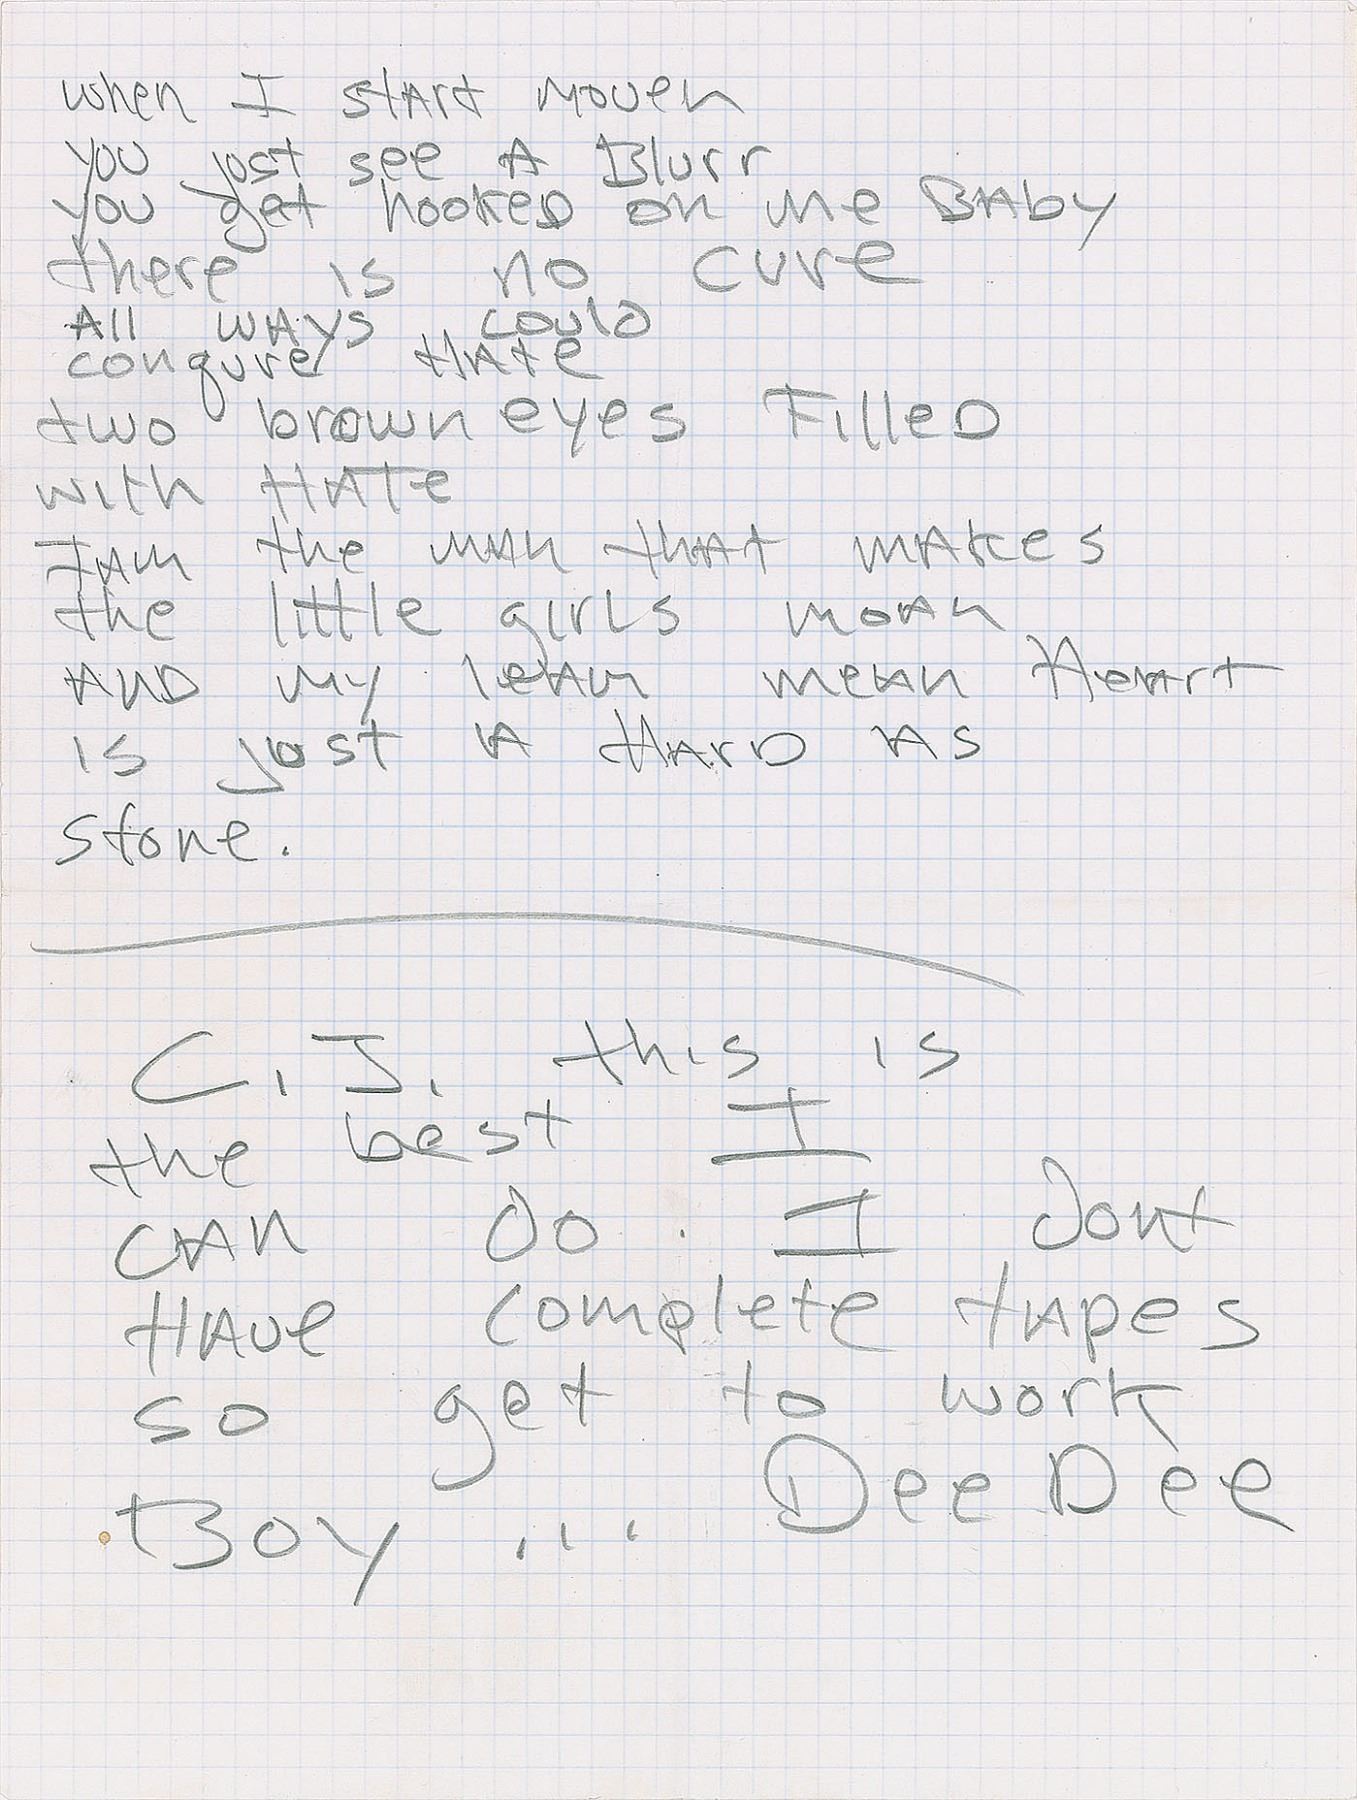 when I start moven
you just see A Blurr
you get hooked on me BAby
there is no cure
All wAys could
conqure HAte
two brown eyes Filled
with HATe
I Am the mAn thAT mAkes
the little girls moAn
AND my leAn meAn HeArt
is just A HArD As
stone.
C. J. this is
the best I
cAn Do. I Dont
HAve complete tApes
so get to work
Boy ... Dee Dee